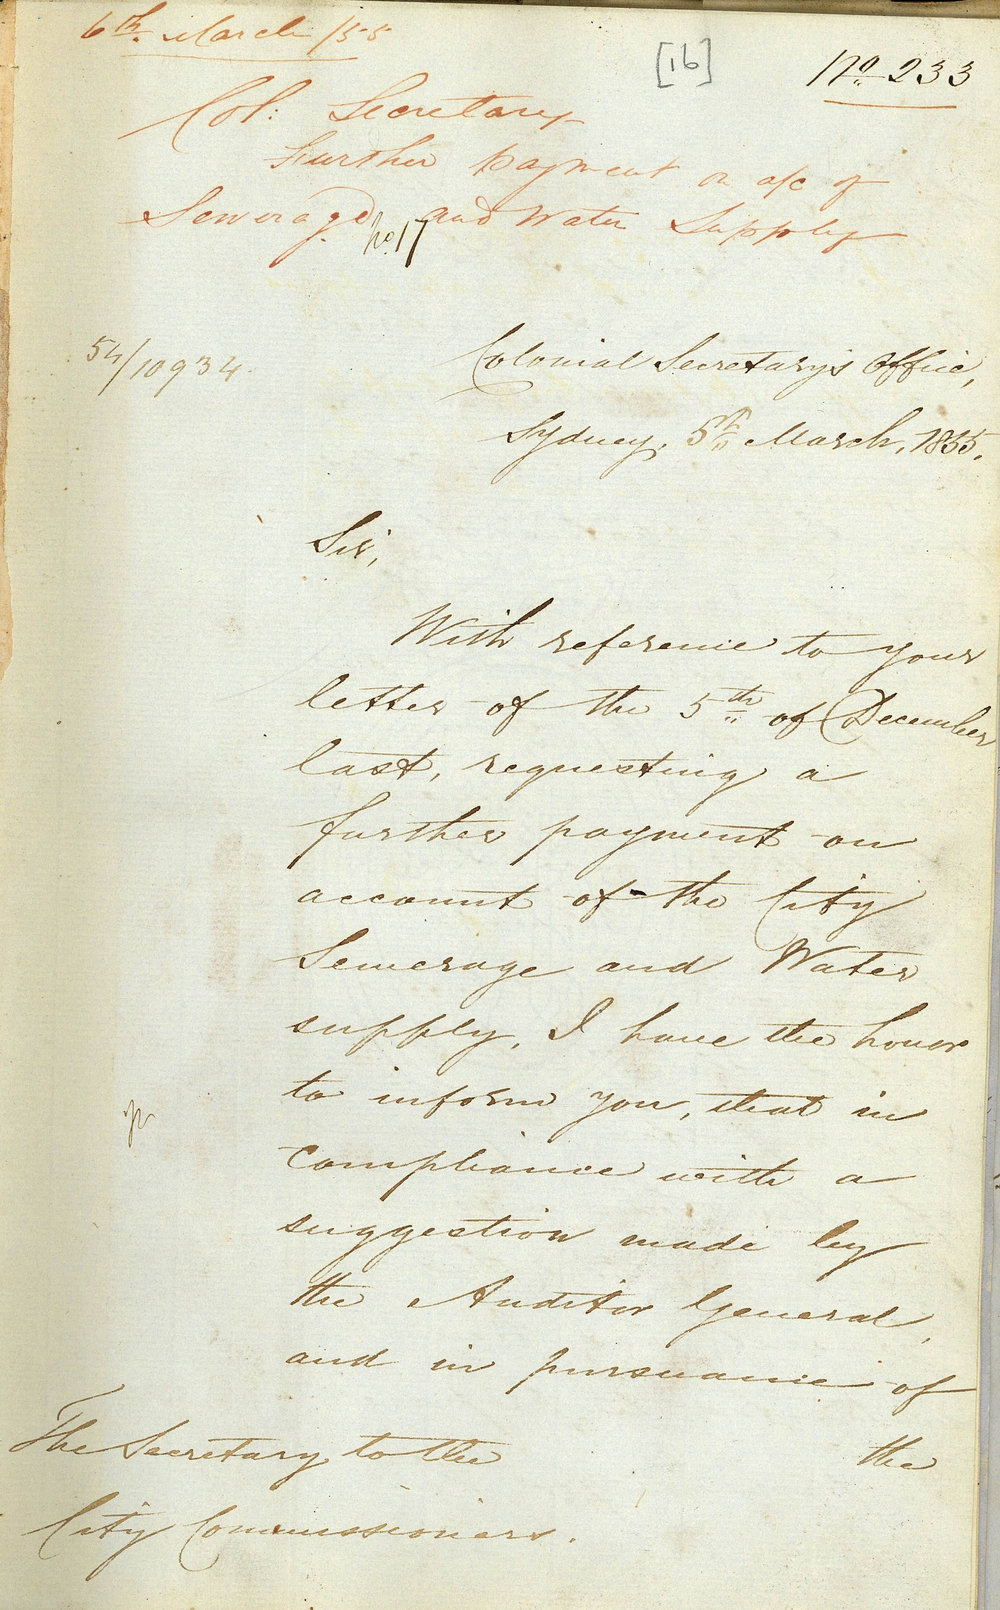 6th. March /55
[16]
No. 233
Col: Secretary
Further payment on a/c of
Sewerage and Water Supply
No. 17
54/10934.
Colonial Secretary's Office,
Sydney, 5th March, 1855.
Sir,
With reference to your
letter of the 5th of December
last, requesting a
further payment on
account of the City
Sewerage and Water
supply, I have the honor
to inform you, that in
compliance with a
suggestion made by
the Auditor General,
and in pursuance of
the
The Secretary to the
City Commissioners.